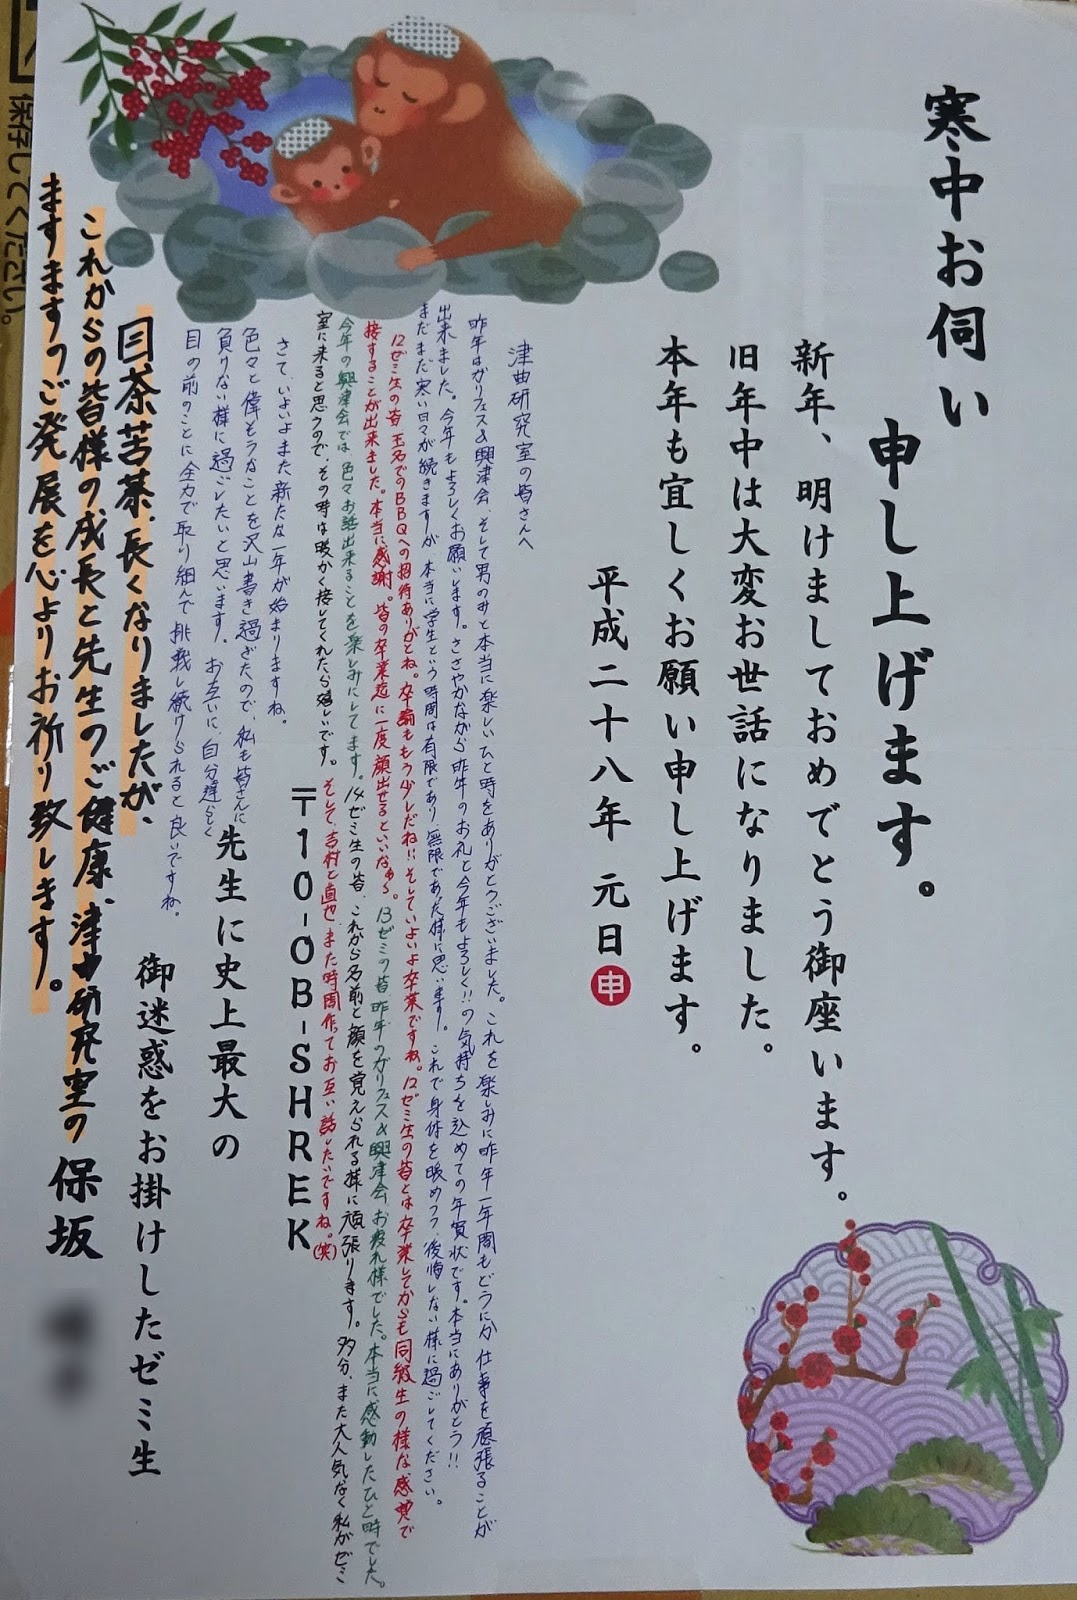 寒中お伺い
申し上げます。
新年、明けましておめでとう御座います。
旧年中は大変お世話になりました。
本年も宜しくお願い申し上げます。
平成二十八年 元日 申
津曲研究室の皆さんへ
昨年はガリフェス&興津会、そして男のみと本当に楽しいひと時をありがとうございました。これを楽しみに昨年一年間もどうにか仕事を頑張ることが
出来ました。今年もよろしくお願いします。ささやかながら昨年のお礼と今年もよろしく!!の気持ちを込めての年賀状です。本当にありがとう!!
まだまだ寒い日々が続きますが、本当に学生という時間は有限であり、無限であった様に思います。これで身体を暖めつつ、後悔しない様に過ごしてください。
12ゼミ生の皆 玉名でのBBQへの招待ありがとね。卒論ももう少しだね!!そしていよいよ卒業ですね。12ゼミ生の皆とは卒業してからも同級生の様な感覚で
接することが出来ました。本当に感謝。皆の卒業迄に一度顔出せるといいなぁ〜。13ゼミの皆 昨年のガリフェス&興津会、お疲れ様でした。本当に感動したひと時でした。
今年の興津会では、色々お話出来ることを楽しみにしてます。14ゼミ生の皆、これから名前と顔を覚えられる様に頑張ります。多分、また大人気なく私がゼミ
室に来ると思うので、その時は暖かく接してくれたら嬉しいです。そして、吉村と直也 また時間作ってお互い話したいですね。(笑)
さて、いよいよまた新たな一年が始まりますね。
色々と偉そうなことを沢山書き過ぎたので、私も皆さんに
負けない様に過ごしたいと思います。お互いに、自分達らしく
目の前のことに全力で取り組んで挑戦し続けられると良いですね。
〒10-OB-SHREK
先生に史上最大の
御迷惑をお掛けしたゼミ生
保坂
茶苦茶、長くなりましたが、
これからの皆様の成長と先生のご健康、津曲研究室の
ますますのご発展を心よりお祈り致します。
保存してください。